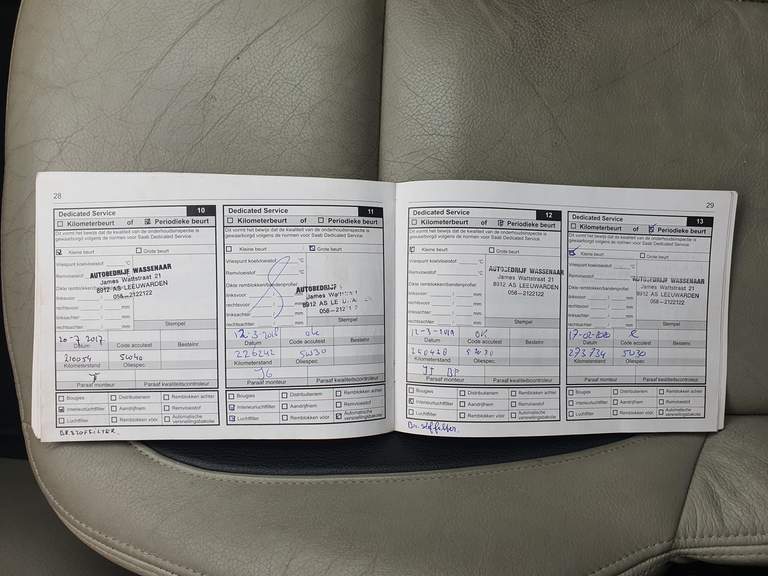 28
Dedicated Service 10
Kilometerbeurt of Periodieke beurt
Dit vormt het bewijs dat de kwaliteit van de onderhoudsinspectie is
gewaarborgd volgens de normen voor Saab Dedicated Service.
Kleine beurt Grote beurt
Vriespunt koelvloeistof: °C
Remvloeistof: °C
Dikte remblokken/bandenprofiel
linksvoor:
rechtsvoor:
linksachter:
rechtsachter:
AUTOBEDRIJF WASSENAAR
James Wattstraat 21
8912 AS LEEUWARDEN
058-2122122
Stempel
20-7 2017
Datum Code accutest Bestelnr.
210054 5W40
Kilometerstand Oliespec.
Paraaf monteur Paraaf kwaliteitscontroleur
Bougies Distributieriem Remblokken achter
Interieurluchtfilter Aandrijfriem Remvloeistof
Luchtfilter Remblokken voor Automatische versnellingsbakolie
BR.STOFFILTER.
Dedicated Service 11
Kilometerbeurt of Periodieke beurt
Dit vormt het bewijs dat de kwaliteit van de onderhoudsinspectie is
gewaarborgd volgens de normen voor Saab Dedicated Service.
Kleine beurt Grote beurt
Vriespunt koelvloeistof: °C
Remvloeistof: °C
Dikte remblokken/bandenprofiel
linksvoor:
rechtsvoor:
linksachter:
rechtsachter:
AUTOBEDRIJF
James Wattstraat
8912 AS
058-212
Stempel
12-3-2018 ok
Datum Code accutest Bestelnr.
226242 5W30
Kilometerstand Oliespec.
Paraaf monteur Paraaf kwaliteitscontroleur
Bougies Distributieriem Remblokken achter
Interieurluchtfilter Aandrijfriem Remvloeistof
Luchtfilter Remblokken voor Automatische versnellingsbakolie
29
Dedicated Service 12
Kilometerbeurt of Periodieke beurt
Dit vormt het bewijs dat de kwaliteit van de onderhoudsinspectie is
gewaarborgd volgens de normen voor Saab Dedicated Service.
Kleine beurt Grote beurt
Vriespunt koelvloeistof: °C
Remvloeistof: °C
Dikte remblokken/bandenprofiel
linksvoor:
rechtsvoor:
linksachter:
rechtsachter:
AUTOBEDRIJF WASSENAAR
James Wattstraat 21
8912 AS LEEUWARDEN
058-2122122
Stempel
12-3-2019 OK
Datum Code accutest Bestelnr.
Kilometerstand Oliespec.
Paraaf monteur Paraaf kwaliteitscontroleur
Bougies Distributieriem Remblokken achter
Interieurluchtfilter Aandrijfriem Remvloeistof
Luchtfilter Remblokken voor Automatische versnellingsbakolie
Br. stoffilter.
Dedicated Service 13
Kilometerbeurt of Periodieke beurt
Dit vormt het bewijs dat de kwaliteit van de onderhoudsinspectie is
gewaarborgd volgens de normen voor Saab Dedicated Service.
Kleine beurt Grote beurt
Vriespunt koelvloeistof: °C
Remvloeistof: °C
Dikte remblokken/bandenprofiel
linksvoor:
rechtsvoor:
linksachter:
rechtsachter:
AUTOBEDRIJF WASSENAAR
James Wattstraat 21
8912 AS LEEUWARDEN
058-2122122
Stempel
17-02-2020
Datum Code accutest Bestelnr.
273734 5W30
Kilometerstand Oliespec.
Paraaf monteur Paraaf kwaliteitscontroleur
Bougies Distributieriem Remblokken achter
Interieurluchtfilter Aandrijfriem Remvloeistof
Luchtfilter Remblokken voor Automatische versnellingsbakolie